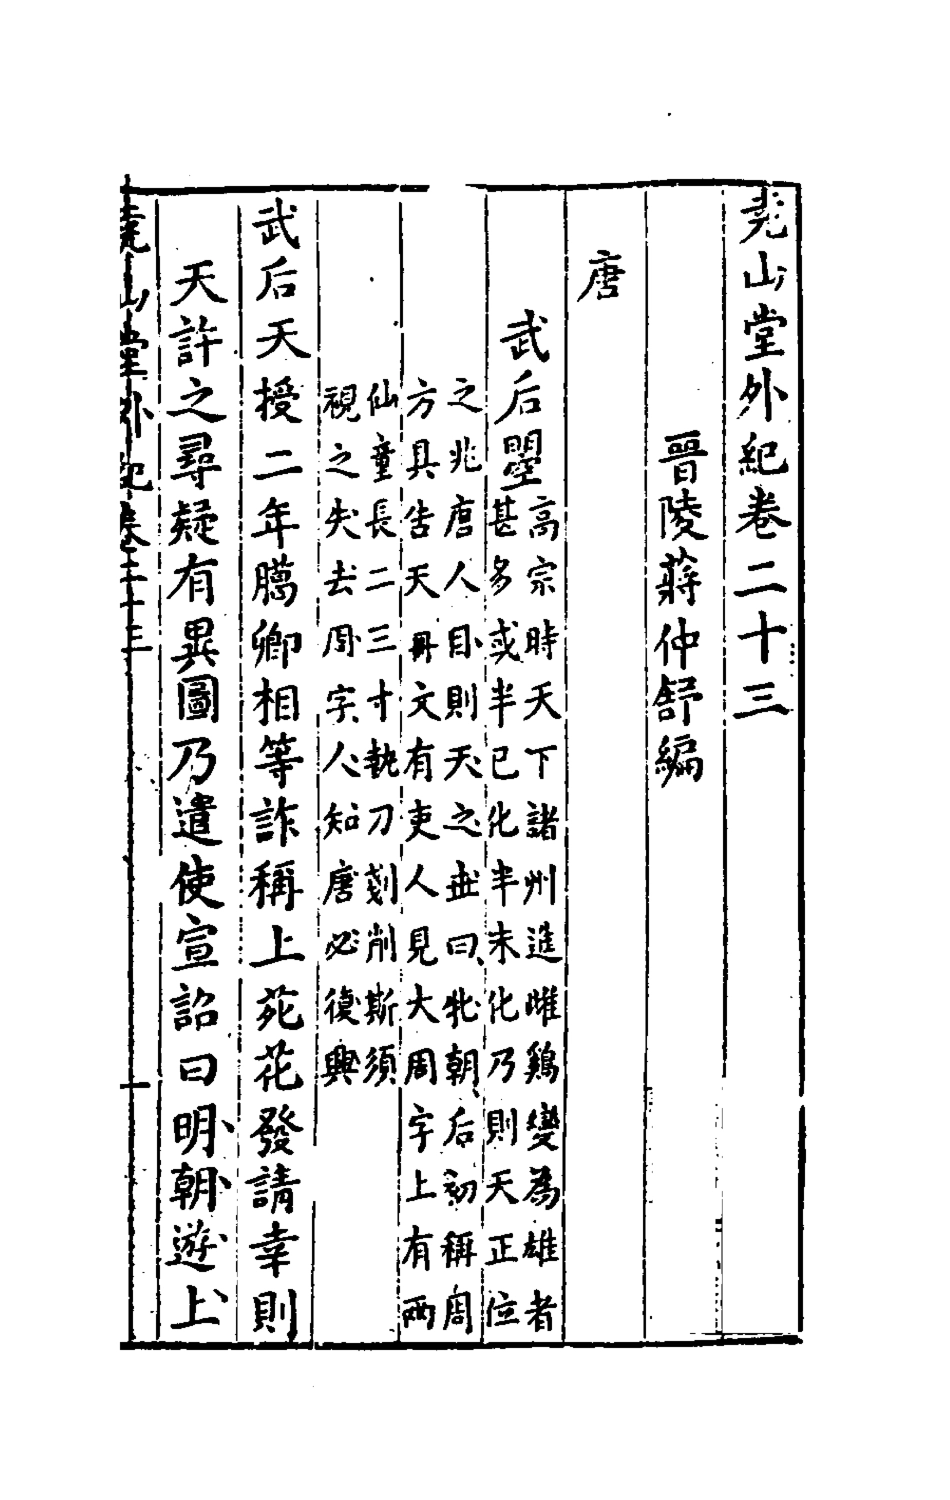 堯山堂外紀卷二十三
晉陵蔣仲舒編
唐
武后曌
高宗時天下諸州進雌鷄變為雄者
甚多或半已化半未化乃則天正位
之兆唐人目則天之世曰牝朝后初稱周
方具告天冊文有吏人見大周字上有兩
仙童長二三寸執刀剗削斯須
視之失去周字人知唐必復興
武后天授二年臈卿相等詐稱上苑花發請幸則
天許之尋疑有異圖乃遣使宣詔曰明朝遊上
堯山堂外紀卷二十三
一